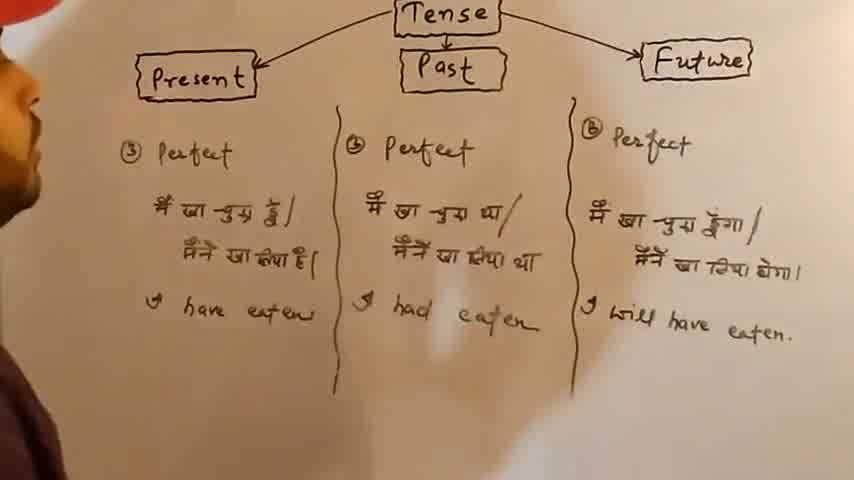 Tense
Present
Past
Future
③ Perfect
मैं खा चुका हूँ/
मैंने खा लिया है।
I have eaten
③ Perfect
मैं खा चुका था/
मैंने खा लिया था
I had eaten
③ Perfect
मैं खा चुका हूँगा/
मैंने खा लिया होगा।
I will have eaten.